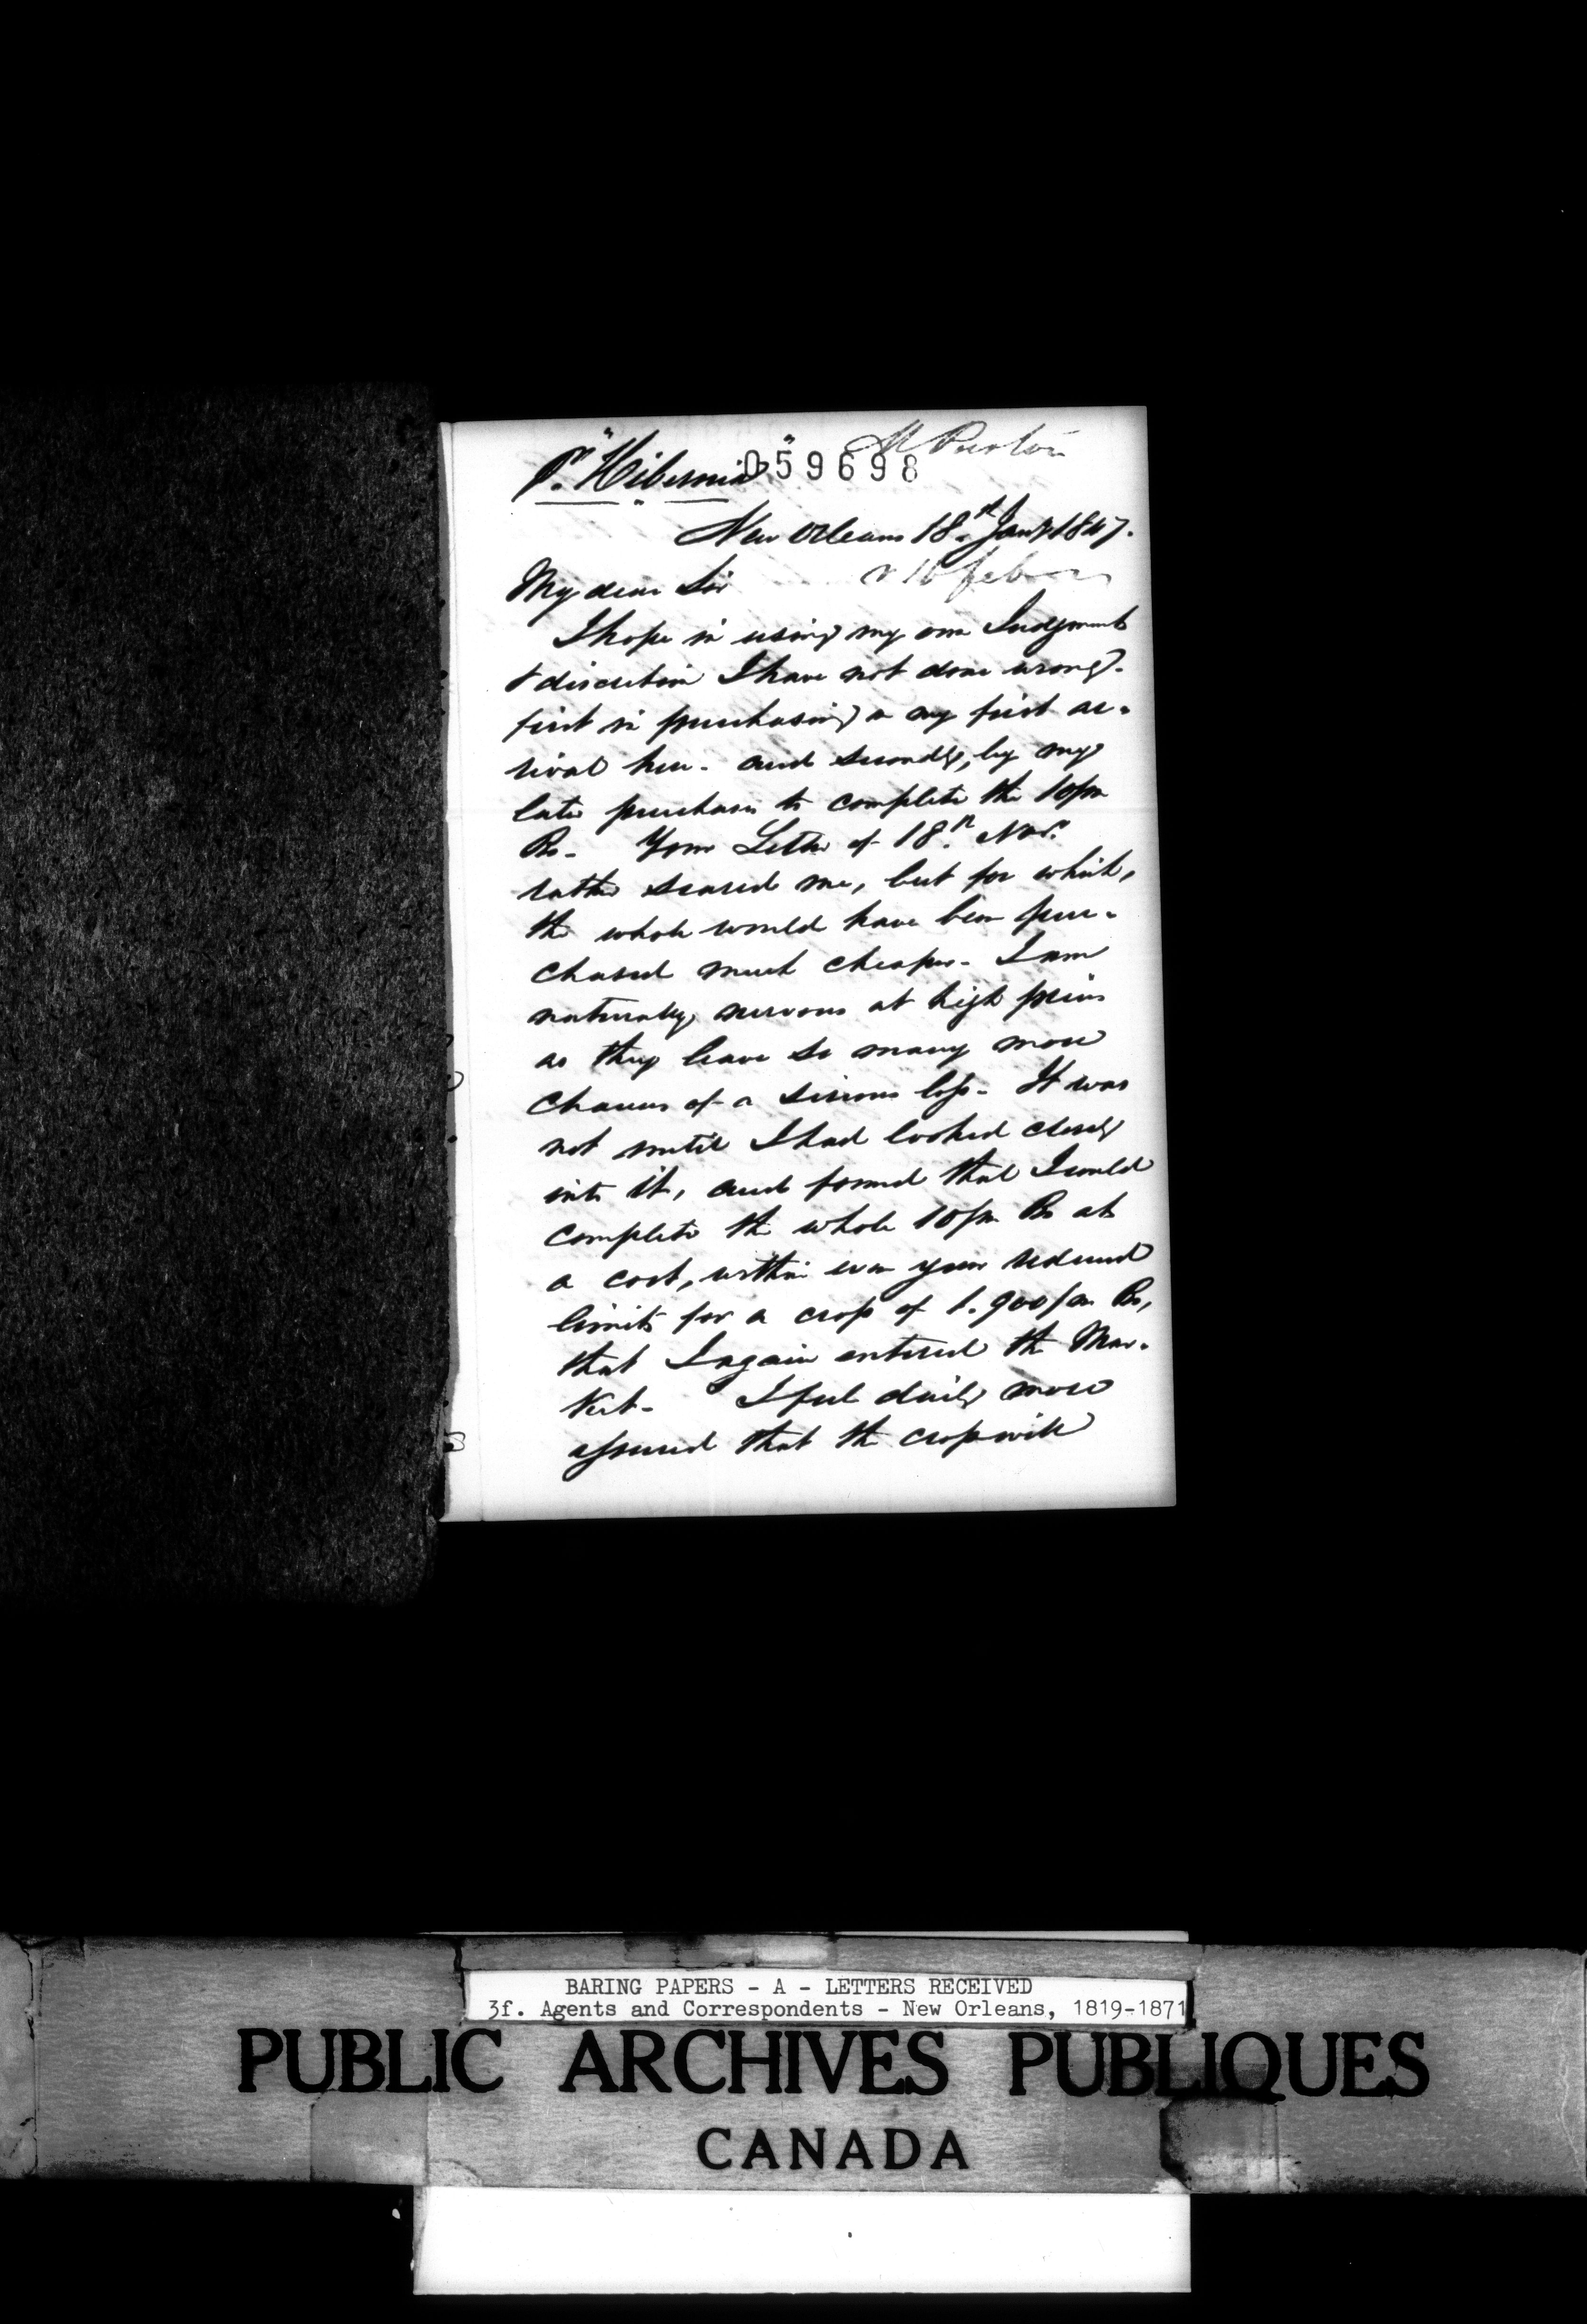 pr. "Hibernia"
059698
New Orleans 18th Jany 1847.
My dear Sir
I hope in using my own Judgment
& discretion I have not done wrong.
first in purchasing on my first ar-
rival here. and secondly, by my
later purchases to complete the 10/m
Bs. Your Letter of 18th Novr.
rather scared me, but for which,
the whole would have been pur-
chased much cheaper. I am
naturally nervous at high prices
as they leave so many more
chances of a serious loss. It was
not until I had looked closely
into it, and found that I could
complete the whole 10/m Bs at
a cost, within even your reduced
limits for a crop of 1.900/m Bs,
that I again entered the Mar-
ket. I feel daily more
assured that the crop will
BARING PAPERS - A - LETTERS RECEIVED
3f. Agents and Correspondents - New Orleans, 1819-1871
PUBLIC ARCHIVES PUBLIQUES
CANADA